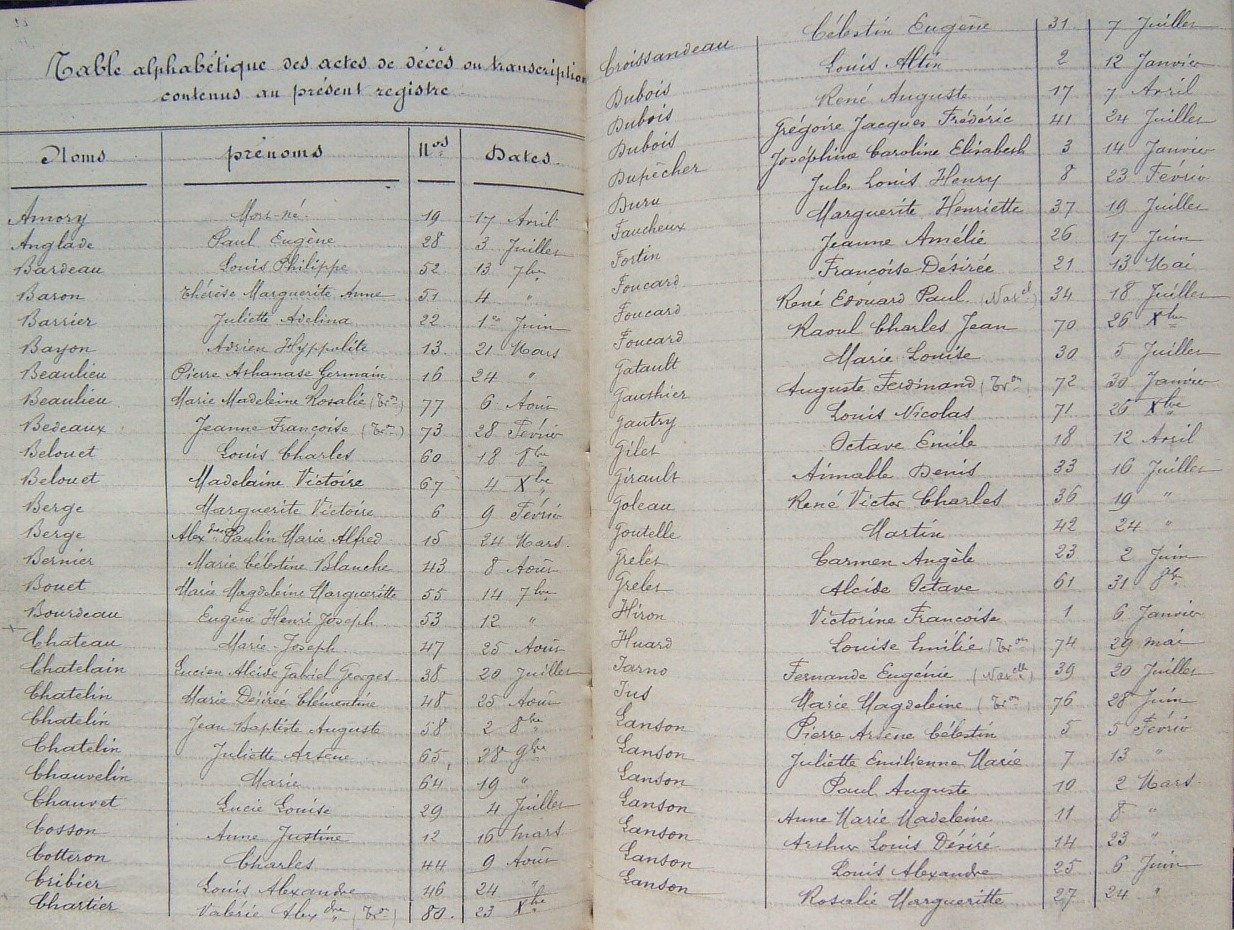 Table alphabétique des actes de décès ou transcription
contenus au présent registre.
Noms prénoms Nos Dates
Amory Mort-né 19 17 Avril
Anglade Paul Eugène 28 3 Juillet
Bardeau Louis Philippe 52 13 7bre
Baron Thérèse Marguerite Anne 51 4 "
Barrier Juliette Adelina 22 1er Juin
Bayon Adrien Hyppolite 13 21 Mars
Beaulieu Pierre Athanase Germain 16 24 "
Beaulieu Marie Madeleine Rosalie (Tron) 77 6 Août
Bedeaux Jeanne Françoise (Tron) 73 28 Février
Belouet Louis Charles 60 18 8bre
Belouet Madelaine Victoire 67 4 Xbre
Berge Marguerite Victoire 6 9 Février
Berge Alexdre Paulin Marie Alfred 15 24 Mars
Bernier Marie Célestine Blanche 43 8 Août
Bouet Marie Magdeleine Margueritte 55 14 7bre
Bourdeau Eugène Henri Joseph 53 12 "
Chateau Marie-Joseph 47 25 Août
Chatelain Lucien Alcide Gabriel Georges 38 20 Juillet
Chatelin Marie Désirée Clémentine 48 25 Août
Chatelin Jean Baptiste Auguste 58 2 8bre
Chatelin Juliette Arsène 65 28 9bre
Chauvelin Marie 64 19 "
Chauvet Lucie Louise 29 4 Juillet
Cosson Anne Justine 12 16 mars
Cotteron Charles 44 9 Août
Cribier Louis Alexandre 46 24 "
Chartier Valérie Alexdre (Tron) 80 23 Xbre
Croissandeau Célestin Eugène 31 7 Juillet
Dubois Louis Albin 2 12 Janvier
Dubois René Auguste 17 7 Avril
Dubois Grégoire Jacques Frédéric 41 24 Juillet
Dupêcher Joséphine Caroline Elisabeth 3 14 Janvier
Duru Jules Louis Henry 8 23 Février
Faucheux Marguerite Henriette 37 19 Juillet
Fortin Jeanne Amélie 26 17 Juin
Foucard Françoise Désirée 21 13 Mai
Foucard René Edouard Paul (Natel) 34 18 Juillet
Foucard Raoul Charles Jean 70 26 Xbre
Gatault Marie Louise 30 5 Juillet
Gauthier Auguste Ferdinand (Tron) 72 30 Janvier
Gautry Louis Nicolas 71 26 Xbre
Gilet Octave Emile 18 12 Avril
Girault Aimable Denis 33 16 Juillet
Goleau René Victor Charles 36 19 "
Goutelle Martin 42 24 "
Grelet Carmen Angèle 23 2 Juin
Grelet Alcide Octave 61 31 8bre
Hiron Victorine Françoise 1 6 Janvier
Huard Louise Emilie (Tron) 74 29 mai
Jarno Fernande Eugénie (Natelle) 39 20 Juillet
Jus Marie Magdeleine (Tron) 76 28 Juin
Lanson Pierre Arsène Célestin 5 5 Février
Lanson Juliette Emilienne Marie 7 13 "
Lanson Paul Auguste 10 2 Mars
Lanson Anne Marie Madeleine 11 8 "
Lanson Arthur Louis Désiré 14 23 "
Lanson Louis Alexandre 25 6 Juin
Lanson Rosalie Margueritte 27 24 "